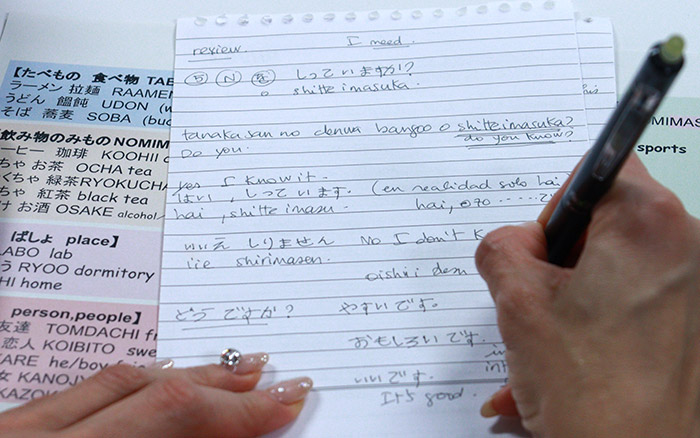 review.
I need.
ち N を しっていますか?
o shitteimasuka.
tanaka san no denwa bangoo o shitteimasuka?
Do you
do you know?
yes I know it.
はい, しっています. (en realidad solo hai)
hai, shitteimasu. hai, 090 ......
いいえ しりません No I don't K
iie shirimasen.
oishii desu
どうですか? やすいです.
おもしろいです.
いいです.
It's good.
【たべもの 食べ物 TAB
ラーメン 拉麺 RAAME
うどん 饂飩 UDON (w
そば 蕎麦 SOBA (buc
飲み物のみもの NOMIM
ーヒー 珈琲 KOOHII c
ちゃ お茶 OCHA tea
くちゃ 緑茶 RYOKUCHA
ちゃ 紅茶 black tea
け お酒 OSAKE alcohol
ばしょ place】
ABO lab
う RYOO dormitory
HI home
person,people】
友達 TOMDACHI fr
恋人 KOIBITO swe
KARE he/boy
女 KANOJY
KAZOK
MIMAS
sports